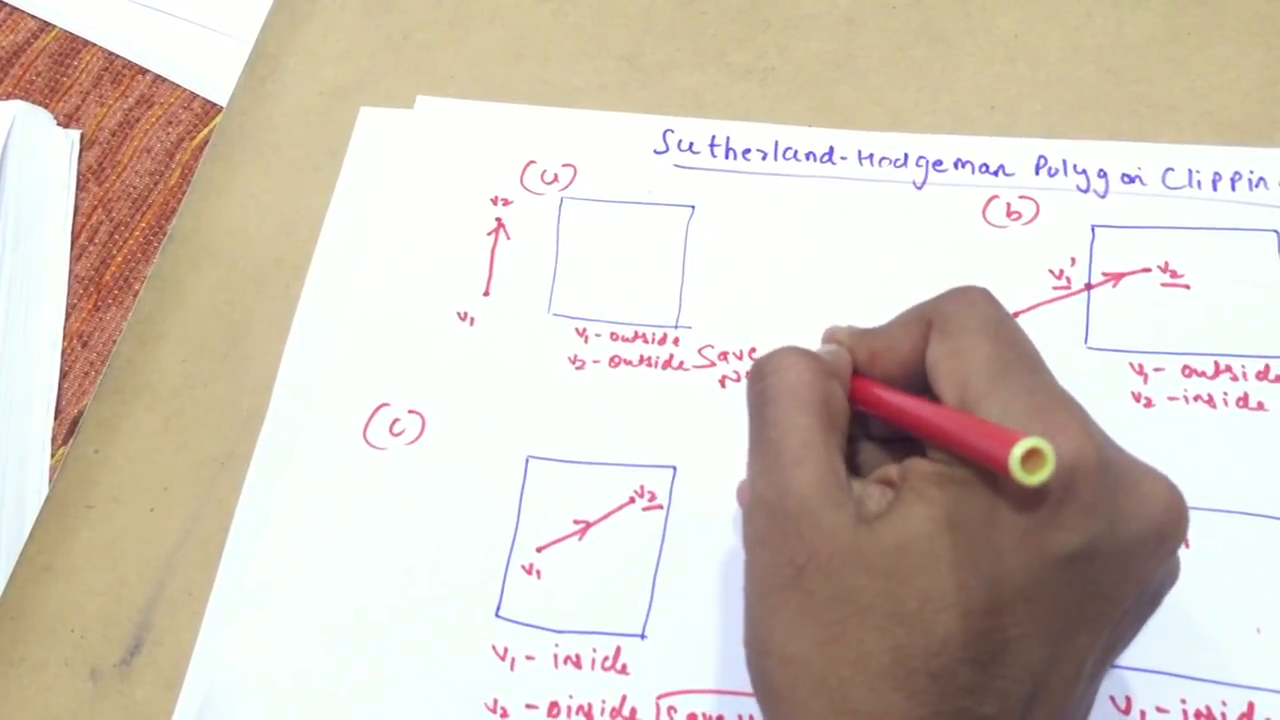 Sutherland-Hodgeman Polygon Clippin
(a)
v2
v1
v1 - outside
v2 - outside Save
(b)
v1'
v2
v1 - outside
v2 - inside
(c)
v2
v1
v1 - inside
v2 -